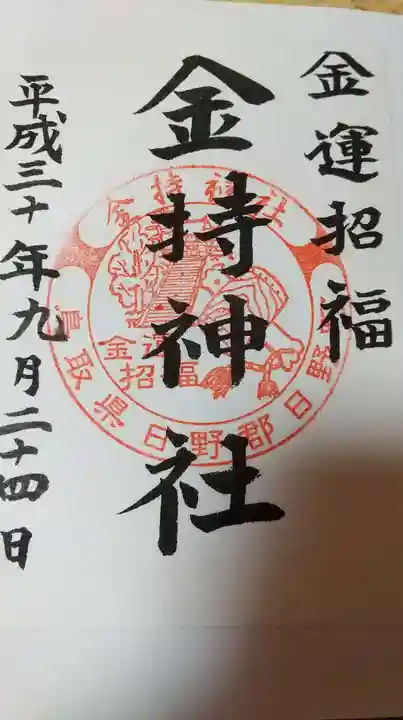 金運招福
金持神社
平成三十年九月二十四日
金持神社
金運
招福
鳥取県日野郡日野